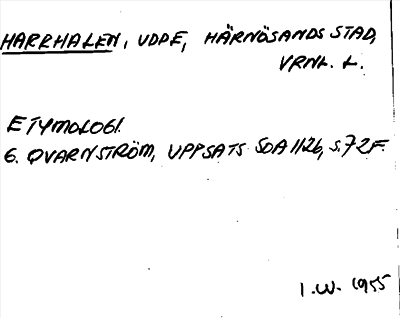 HARRHALEN, UDDE, HÄRNÖSANDS STAD,
VRNL. L.
ETYMOLOGI.
G. QVARNSTRÖM, UPPSATS SOA 1126, S. 72F.
I.W. 1955